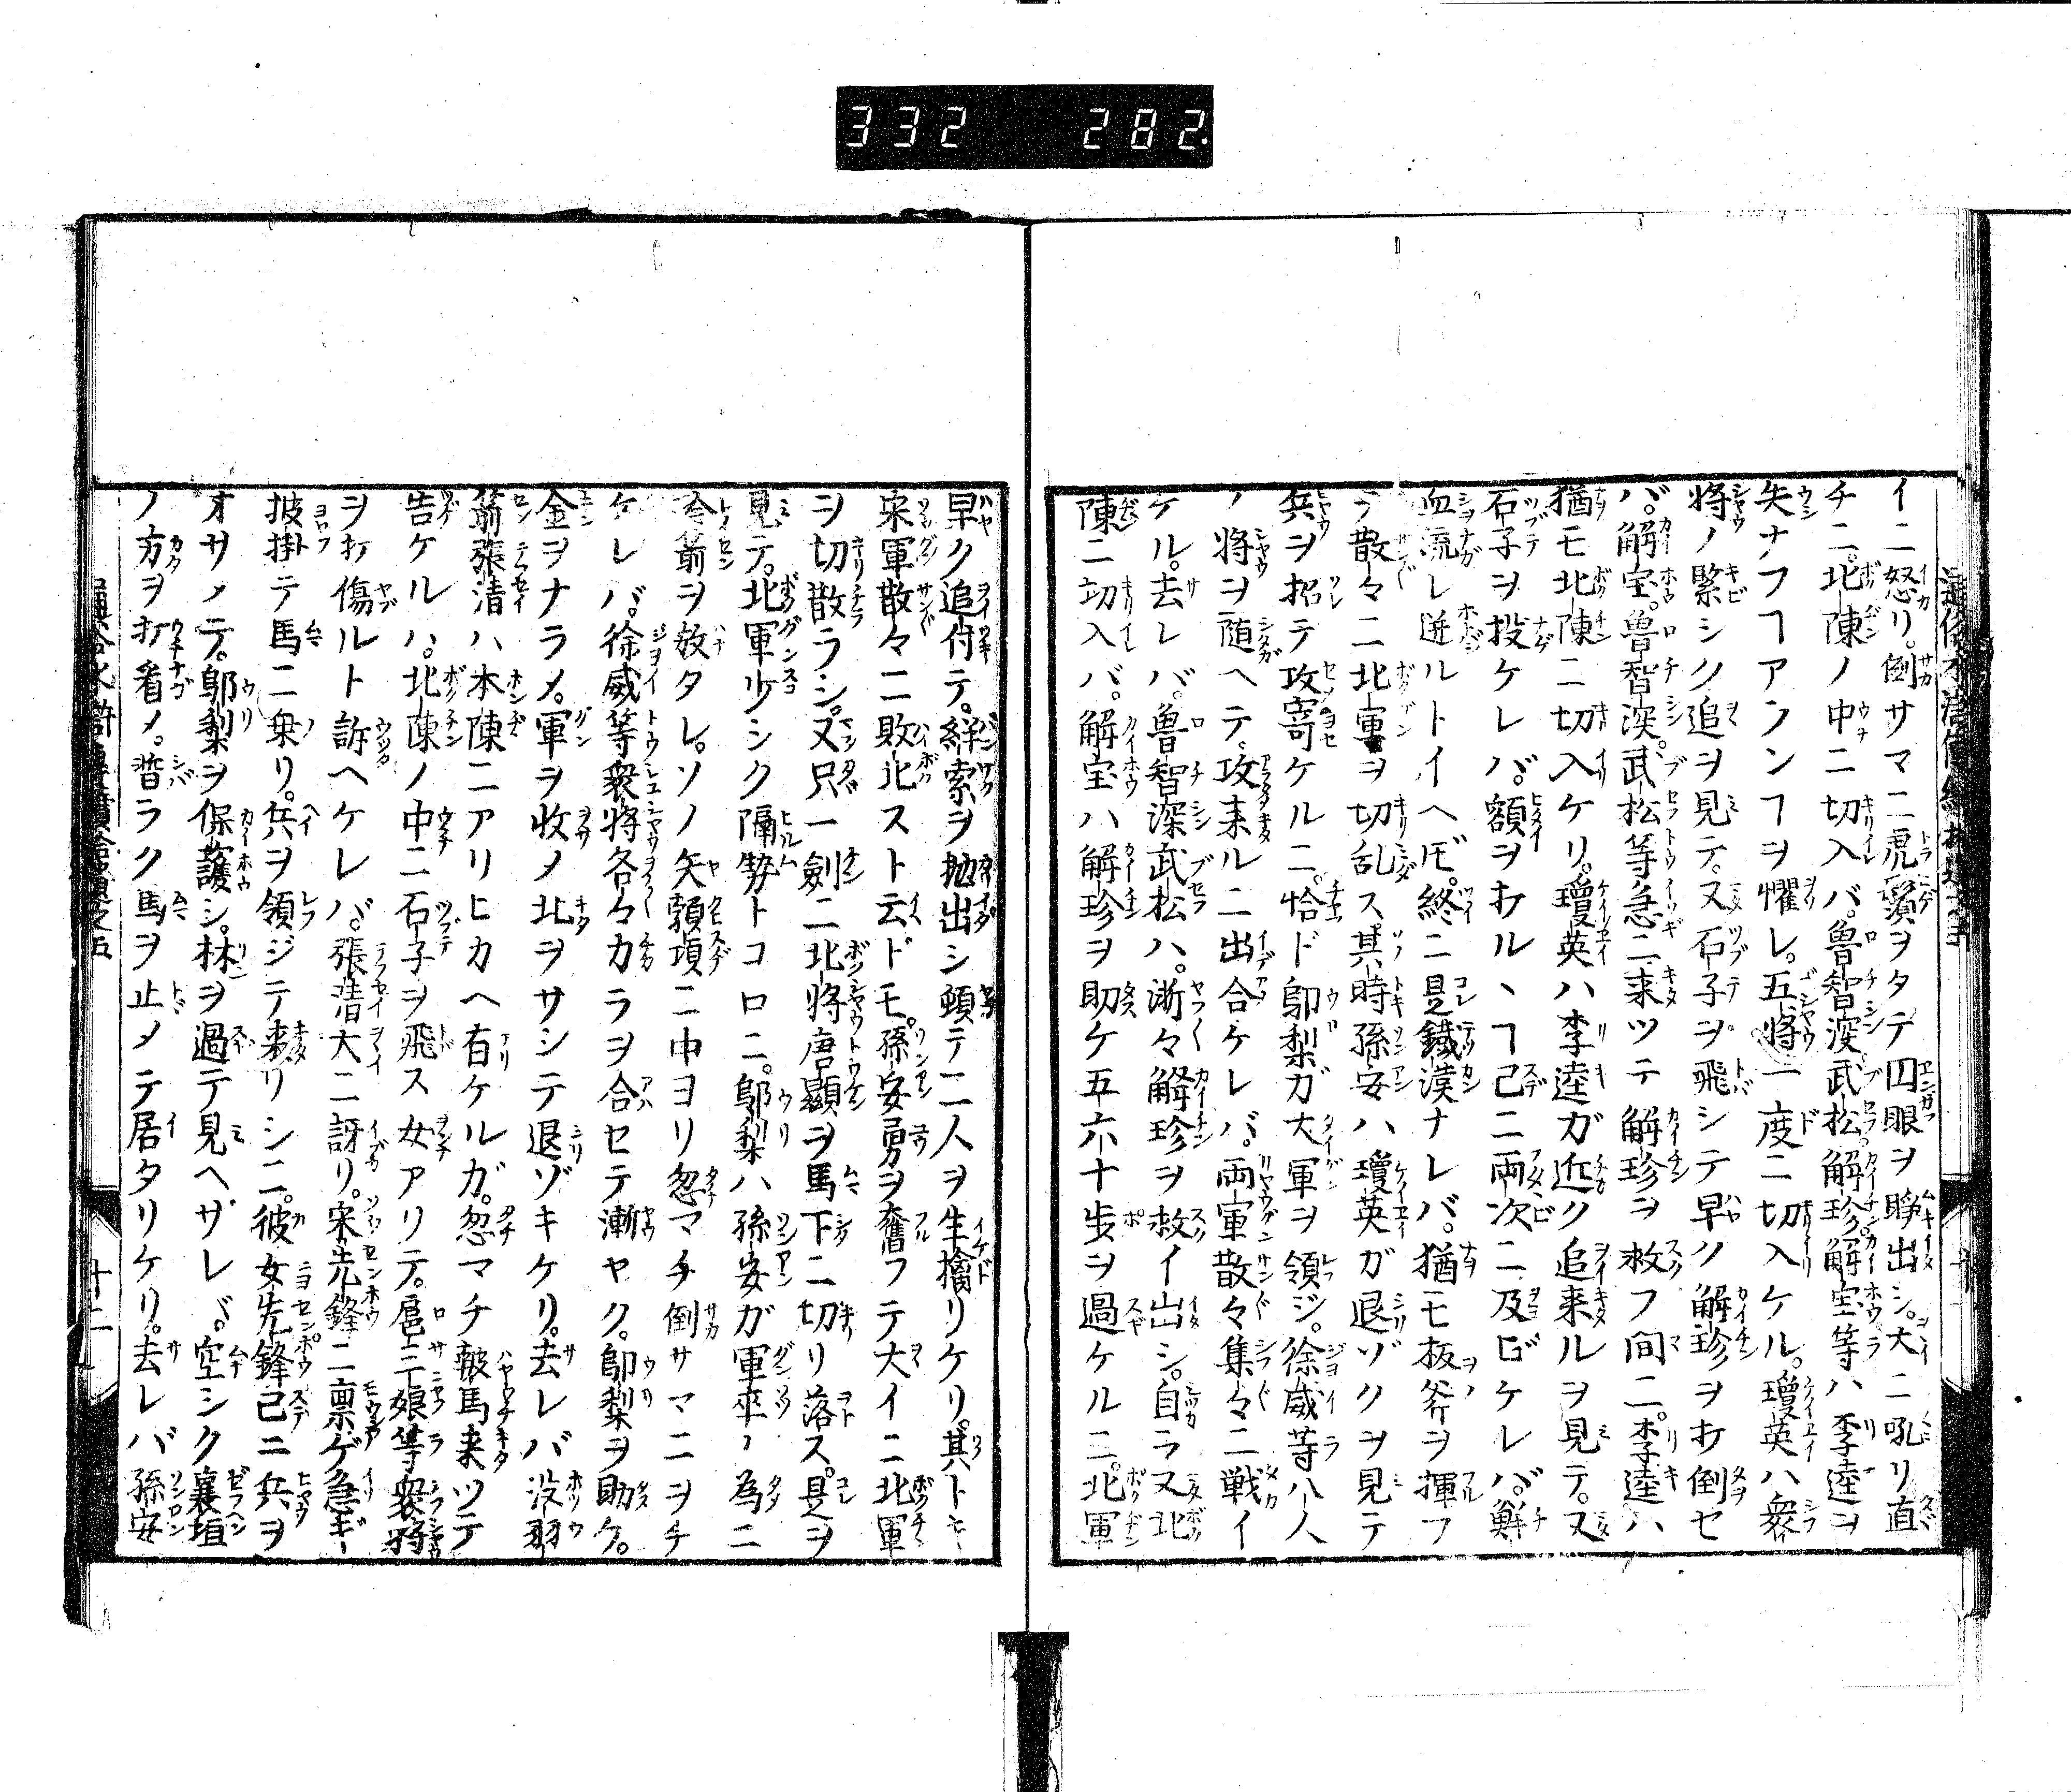 332 282
イニ怒リ。倒サマニ虎鬚ヲタテ囚眼ヲ睜出シ。大ニ吼リ直
チニ。北陳ノ中ニ切入バ。魯智深武松解珍解宝等ハ李逵ヲ
失ナフヿアランヿヲ懼レ。五将一度ニ切入ケル。瓊英ハ衆
将ノ緊シク追ヲ見テ。又石子ヲ飛シテ早ク解珍ヲ打倒セ
バ。解宝。魯智深。武松等急ニ来ツテ解珍ヲ救フ間ニ。李逵ハ
猶モ北陳ニ切入ケリ。瓊英ハ李逵ガ近ク追来ルヲ見テ。又
石子ヲ投ケレバ。額ヲ打ルヽヿ已ニ両次ニ及ビケレバ。鮮
血流レ迸ルトイヘ𪜈。終ニ是鐵漢ナレバ。猶モ板斧ヲ揮フ
テ散々ニ北軍ヲ切乱ス。其時孫安ハ瓊英ガ退ゾクヲ見テ
兵ヲ招テ攻寄ケルニ。恰ド鄔梨ガ大軍ヲ領ジ。徐威等八人
ノ将ヲ随ヘテ。攻来ルニ出合ケレバ。両軍散々集々ニ戦イ
ケル。去レバ。魯智深武松ハ。漸々解珍ヲ救イ出シ。自ラ又北
陳ニ切入バ。解宝ハ解珍ヲ助ケ五六十歩ヲ過ケルニ。北軍
早ク追付テ。絆索ヲ抛出シ頓テ二人ヲ生擒リケリ。其トキ
宋軍散々ニ敗北スト云ドモ。孫安勇ヲ奮フテ大イニ北軍
ヲ切散ラシ。又只一劍ニ北将唐顯ヲ馬下ニ切リ落ス。是ヲ
見テ。北軍少シク隔勢トコロニ。鄔梨ハ孫安ガ軍卒ノ為ニ
冷箭ヲ放タレ。ソノ矢頸項ニ中ヨリ忽マチ倒サマニヲチ
ケレバ。徐威等衆将各々力ラヲ合セテ漸ヤク。鄔梨ヲ助ケ。
金ヲナラメ。軍ヲ收メ北ヲサシテ退ゾキケリ。去レバ没羽
箭張清ハ本陳ニアリヒカヘ有ケルガ。忽マチ報馬来ツテ
告ケルハ。北陳ノ中ニ石子ヲ飛ス女アリテ。扈三娘等衆将
ヲ打傷ルト訴ヘケレバ。張清大ニ訝リ。宋先鋒ニ稟ゲ急ギ
披掛テ馬ニ乗リ。兵ヲ領ジテ来リシニ。彼女先鋒已ニ兵ヲ
オサメテ。鄔梨ヲ保護シ。林ヲ過テ見ヘザレバ。空シク襄垣
ノ方ヲ打看メ。暫ラク馬ヲ止メテ居タリケリ。去レバ孫安
十二